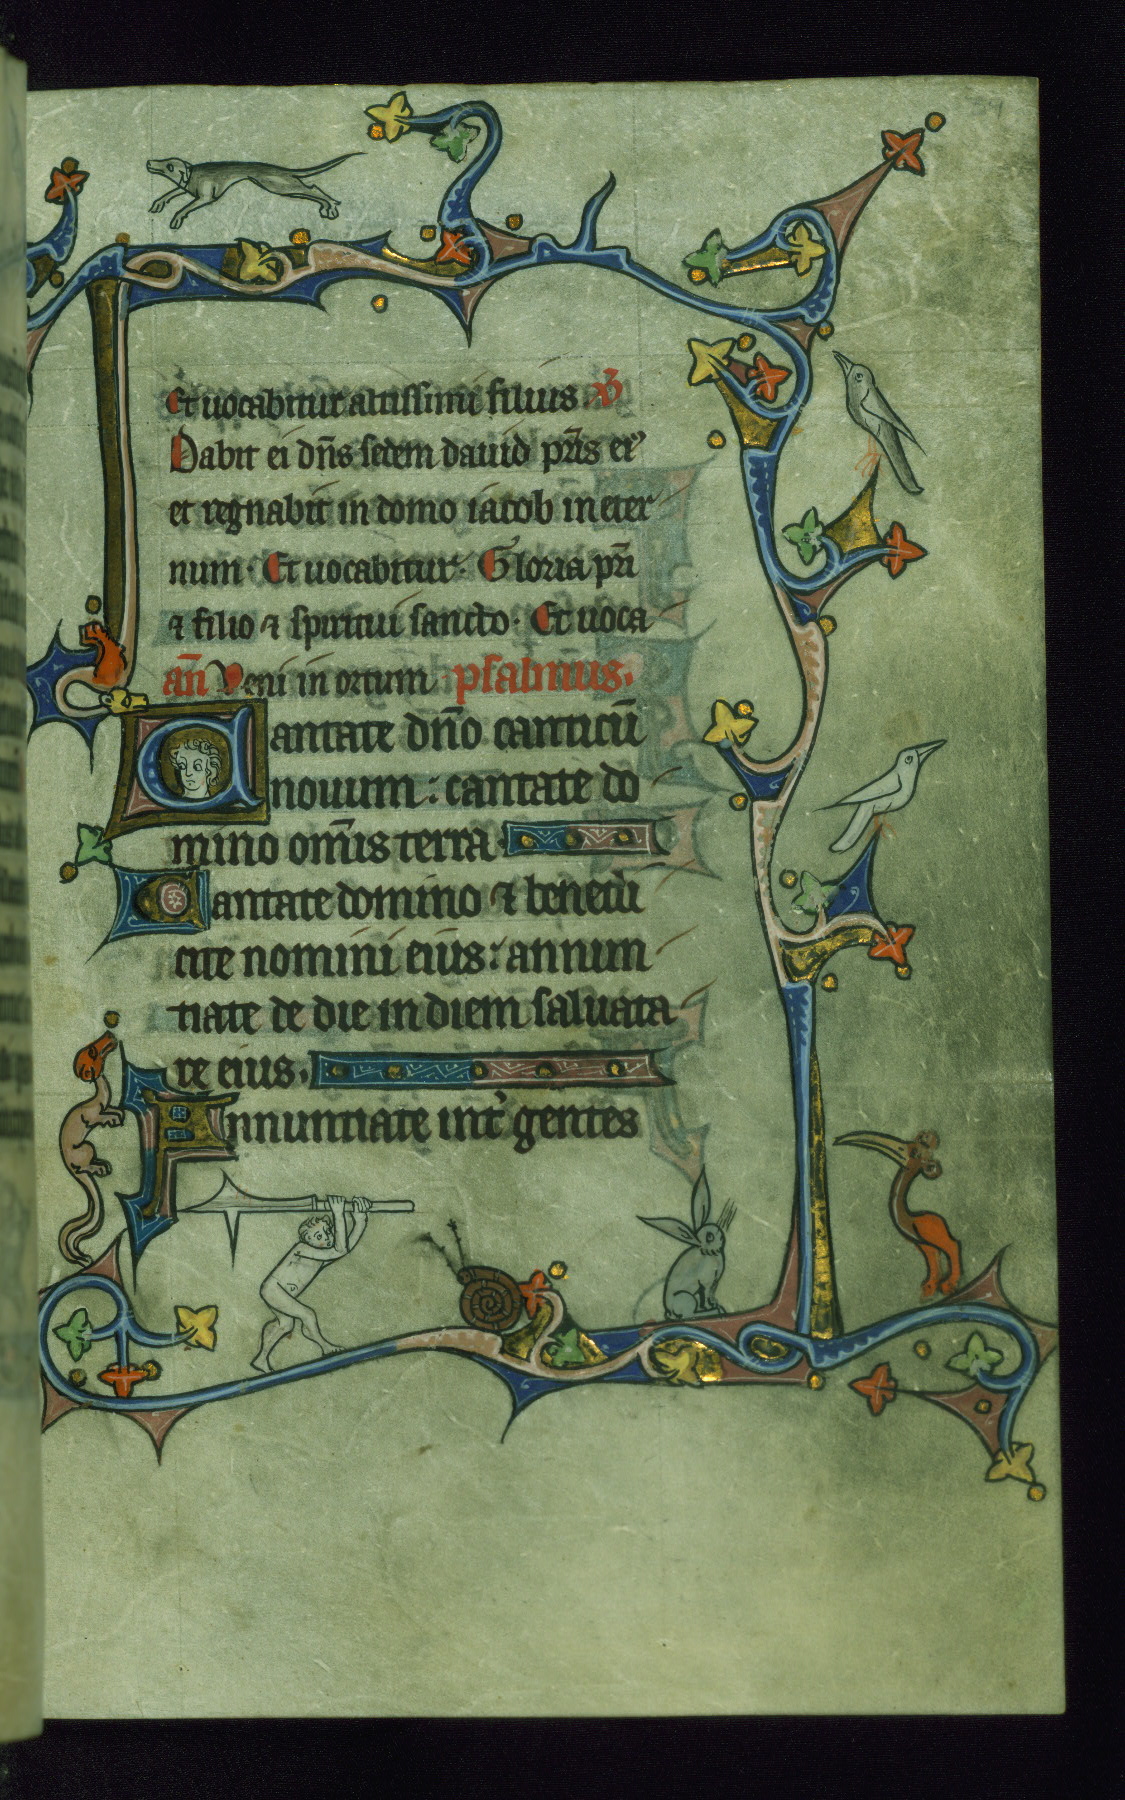 Et uocabitur altissimi filius. V̄
Dabit ei dn̄s sedem dauid pr̄is ei9
et regnabit in domo iacob in eter
num. Et uocabitur. Gloria pr̄i
⁊ filio ⁊ spiritui sancto. Et uoca
an̄ Veni in ortum psalmus.
Cantate dn̄o canticū
nouum: cantate do
mino om̄is terra.
Cantate domino ⁊ benedi
cite nomini eius: annun
tiate de die in diem saluata
re eius.
Annuntiate int̉ gentes